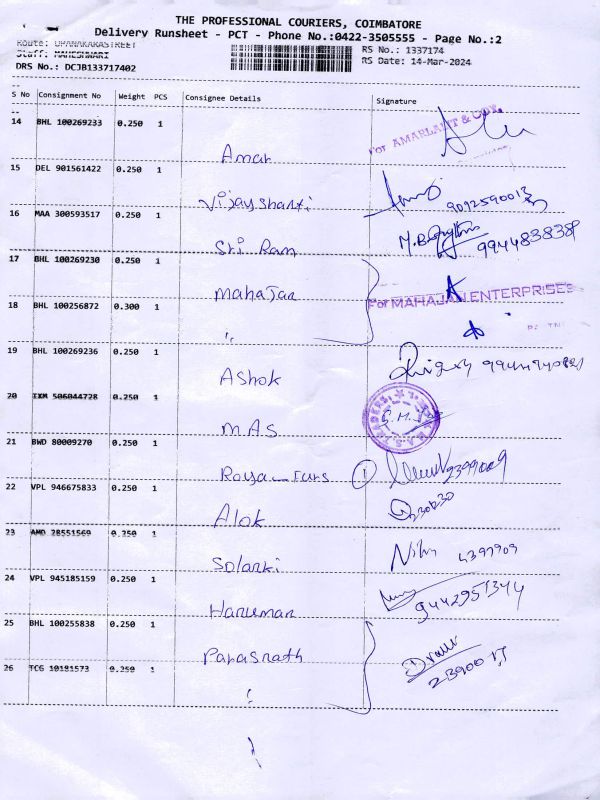 THE PROFESSIONAL COURIERS, COIMBATORE
Delivery Runsheet - PCT - Phone No.:0422-3505555 - Page No.:2
Route: UPANAKARASTREET
Staff: MAHESHWARI
RS No.: 1337174
DRS No.: DCJB133717402
RS Date: 14-Mar-2024
S No Consignment No Weight PCS Consignee Details Signature
14 BHL 100269233 0.250 1 Amar For AMARLAL
15 DEL 901561422 0.250 1 Vijayshanti
16 MAA 300593517 0.250 1 Sri Ram
17 BHL 100269230 0.250 1 Mahajan For MAHAJAN ENTERPRISES
18 BHL 100256872 0.300 1 "
19 BHL 100269236 0.250 1 Ashok
20 IXM 506044728 0.250 1 MAS
21 BWD 80009270 0.250 1 Roya Furs 1
22 VPL 946675833 0.250 1 Alok 230230
23 AMD 28551569 0.250 1 Solanki
24 VPL 945185159 0.250 1 Hanuman 9442951344
25 BHL 100255838 0.250 1 Parasnath
26 TCG 10181573 0.250 1 "